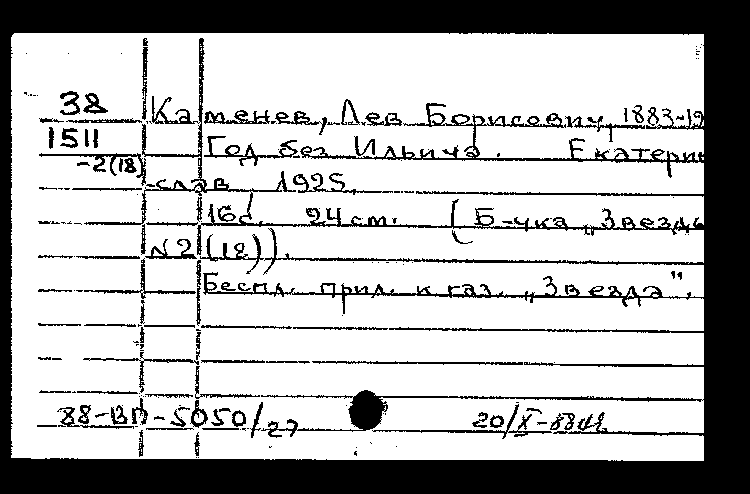 38 Каменев, Лев Борисович, 1883-19
1511 Год без Ильича. Екатерин
-2(18) -слав, 1925.
16с. 24 см. (Б-чка „Звезды
N2 (18)).
Беспл. прил. к газ. „Звезда".
88-ВП-5050/27 20/X-88